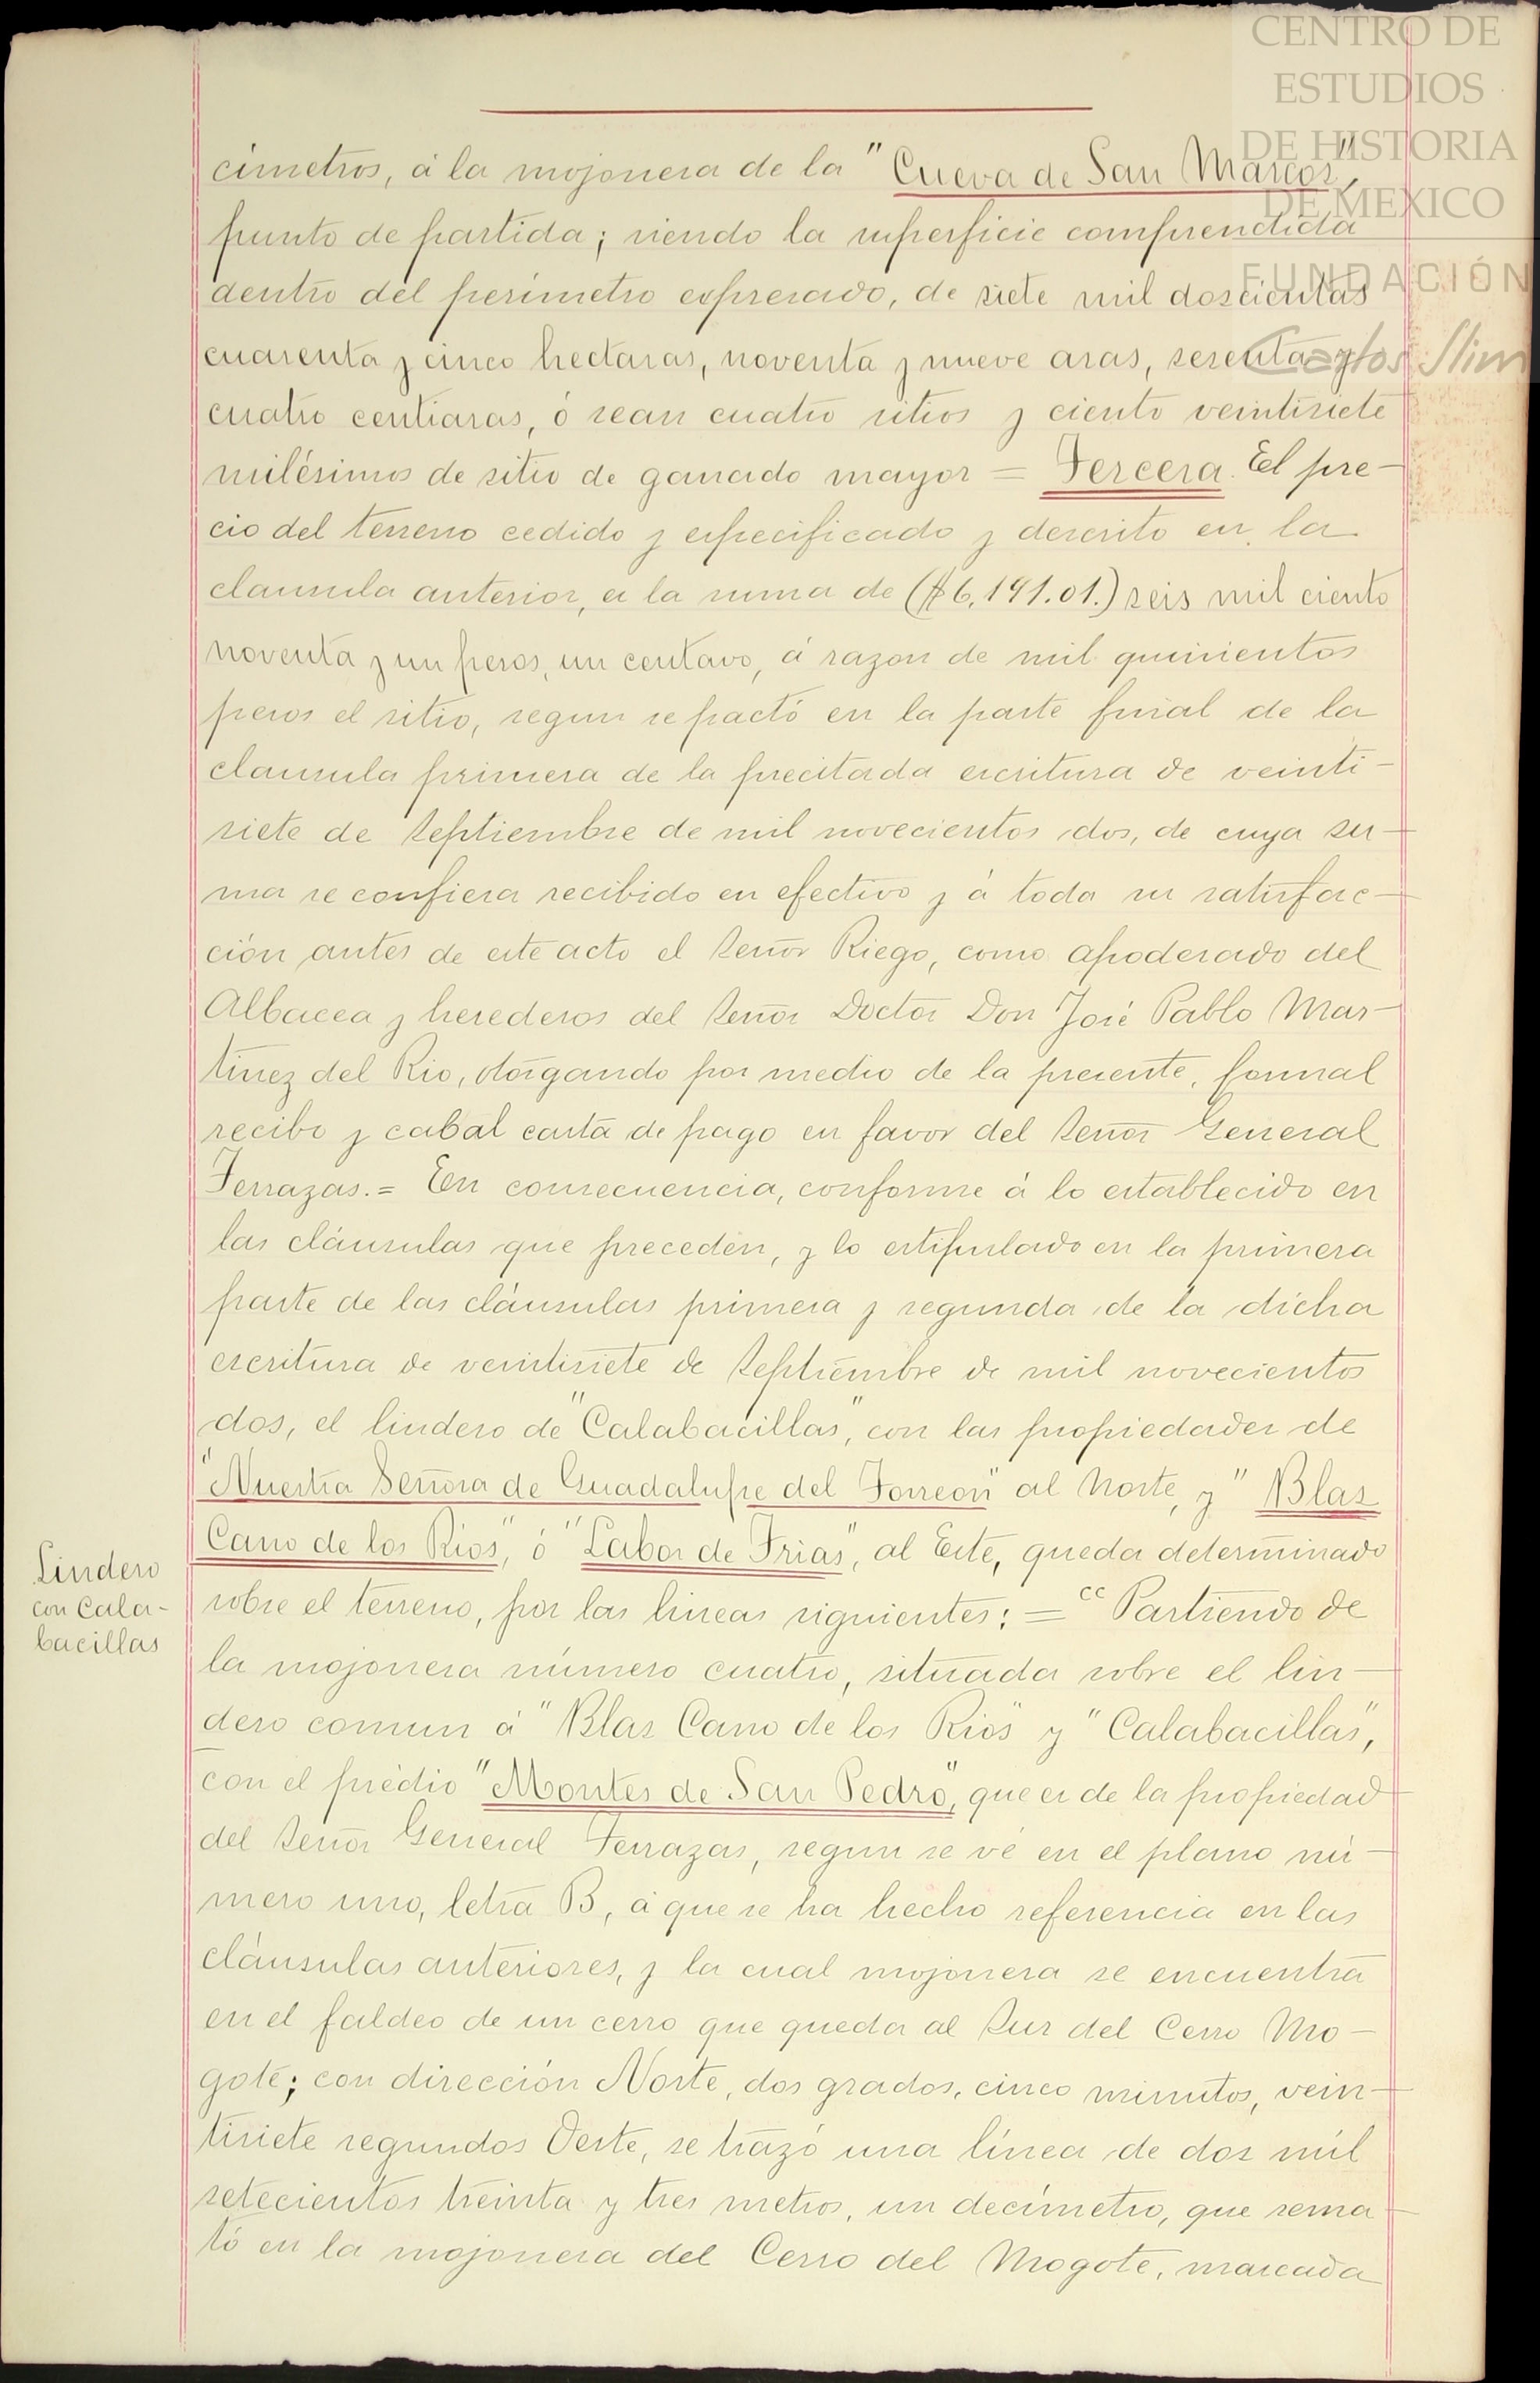 CENTRO DE
ESTUDIOS
DE HISTORIA
DE MEXICO
FUNDACIÓN
Carlos Slim
címetros, á la mojonera de la "Cueva de San Marcos",
punto de partida; siendo la superficie comprendida
dentro del perímetro expresado, de siete mil doscientas
cuarenta y cinco hectaras, noventa y nueve aras, sesenta y
cuatro centiaras, ó sean cuatro sitios y ciento veintisiete
milésimos de sitio de ganado mayor = Tercera. El pre-
cio del terreno cedido y especificado y descrito en la
clausula anterior, es la suma de ($6,191.01.) seis mil ciento
noventa y un pesos, un centavo, á razon de mil quinientos
pesos el sitio, segun se pactó en la parte final de la
clausula primera de la precitada escritura de veinti-
siete de Septiembre de mil novecientos dos, de cuya su-
ma se confiesa recibido en efectivo y á toda su satisfac-
ción antes de este acto el Señor Riego, como apoderado del
Albacea y herederos del Señor Doctor Don José Pablo Mar-
tinez del Rio, otorgando por medio de la presente, formal
recibo y cabal carta de pago en favor del Señor General
Terrazas.= En consecuencia, conforme á lo establecido en
las cláusulas que preceden, y lo estipulado en la primera
parte de las cláusulas primera y segunda de la dicha
escritura de veintisiete de Septiembre de mil novecientos
dos, el lindero de "Calabacillas", con las propiedades de
"Nuestra Señora de Guadalupe del Torreon" al Norte, y "Blas
Cano de los Rios", ó "Labor de Frias", al Este, queda determinado
Lindero
con Cala-
bacillas
sobre el terreno, por las lineas siguientes: = "Partiendo de
la mojonera número cuatro, situada sobre el lin-
dero comun á "Blas Cano de los Rios" y "Calabacillas",
con el prédio "Montes de San Pedro", que es de la propiedad
del Señor General Terrazas, segun se vé en el plano nú-
mero uno, letra B, á que se ha hecho referencia en las
cláusulas anteriores, y la cual mojonera se encuentra
en el faldeo de un cerro que queda al Sur del Cerro Mo-
gote; con dirección Norte, dos grados, cinco minutos, vein-
tisiete segundos Oeste, se trazó una línea de dos mil
setecientos treinta y tres metros, un decímetro, que rema-
tó en la mojonera del Cerro del Mogote, marcada